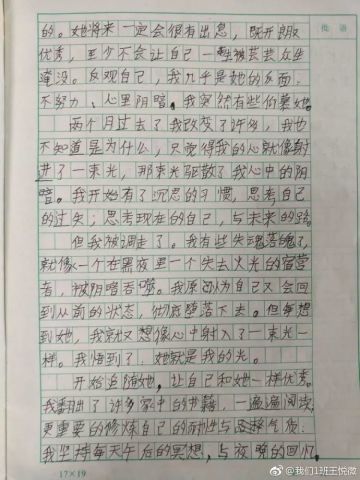 批 语
的。她将来一定会很有出息，既开朗又
优秀，至少不会让自己一生被芸芸众生
淹没。反观自己，我几乎是她的反面：
不努力、心里阴暗，我突然有些仰慕她。
两个月过去了我改变了许多，我也
不知道是为什么，只觉得我的心就像射
进了一束光，那束光驱散了我心中的阴
暗。我开始有了沉思的习惯，思考自己
的过失；思考现在的自己，与未来的路。
但我被调走了。我有些失魂落魄了，
就像一个在黑夜里一个失去火光的宿营
者，被阴暗吞噬。我原以为自己又会回
到从前的状态，彻底堕落下去。但每想
到她，我就又想像心中射入了一束光一
样。我悟到了，她就是我的光。
开始追随她，让自己和她一样优秀。
我翻出了许多家中的书籍，一遍遍阅读，
更重要的修炼自己的耐性与品格气质。
我坚持每天午后的冥想，与夜晚的回忆，
17×19
@我们1班王悦微